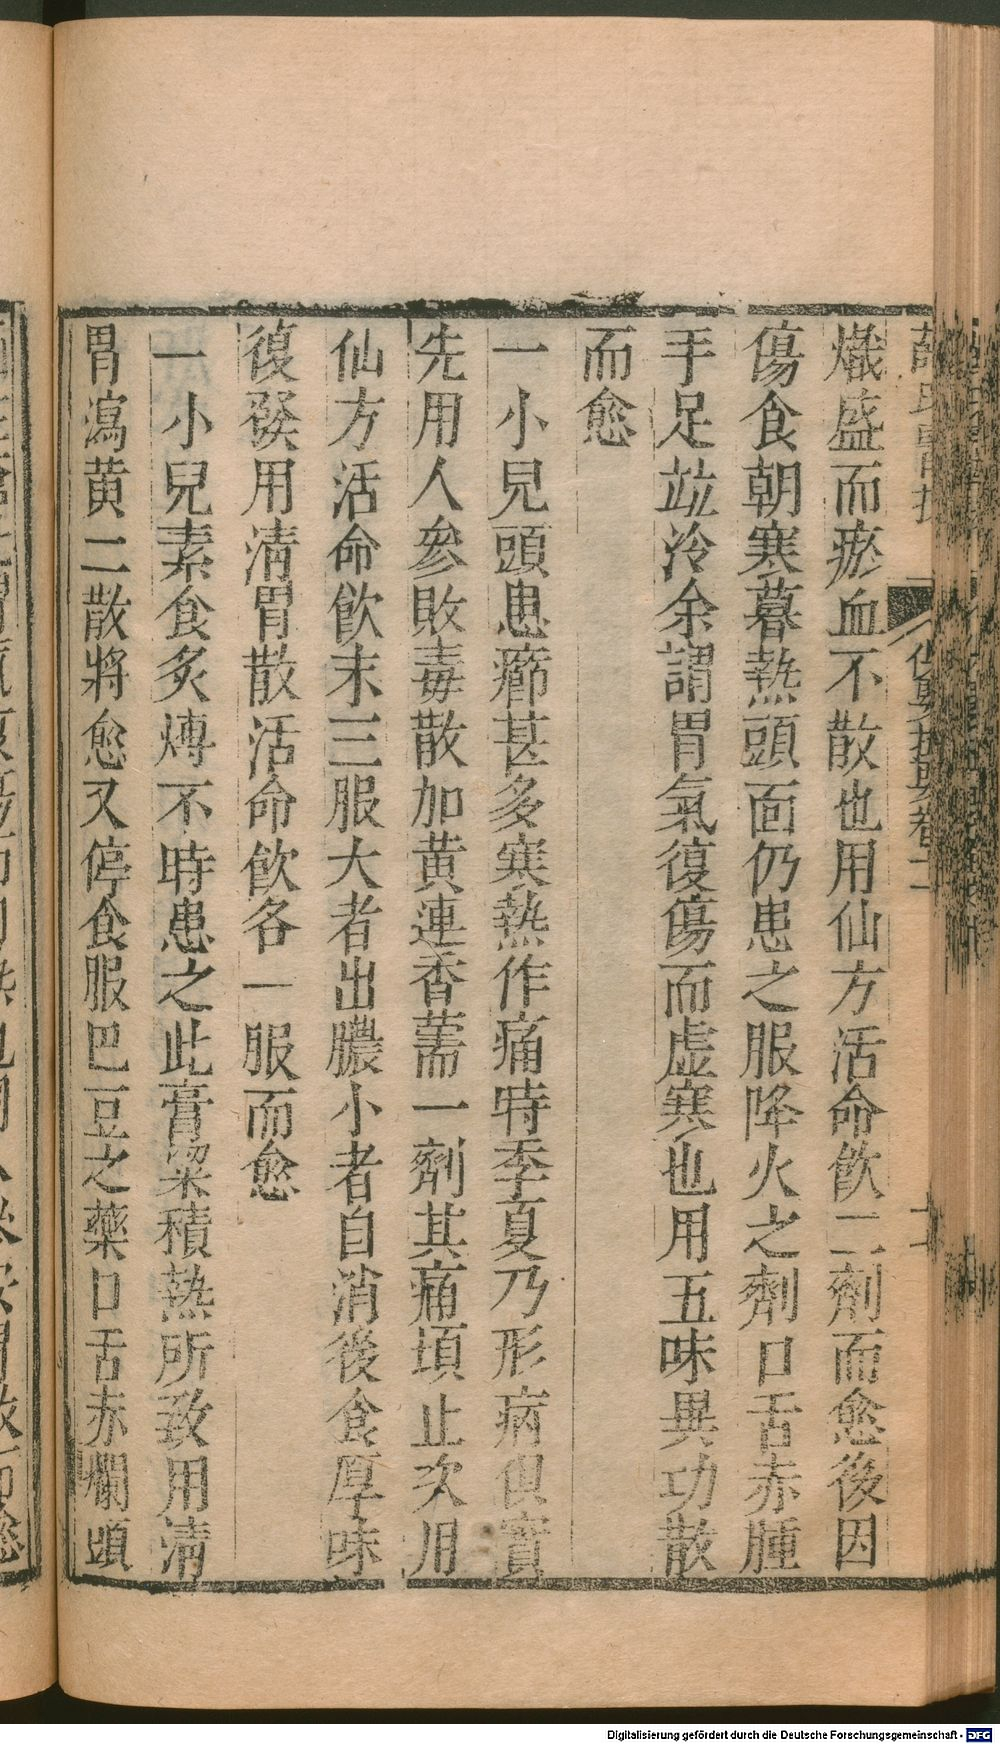 熾盛而瘀血不散也用仙方活命飲二劑而愈後因
傷食朝寒暮熱頭面仍患之服降火之劑口舌赤腫
手足竝冷余謂胃氣復傷而虚寒也用五味異功散
而愈
一小兒頭患癤甚多寒熱作痛時季夏乃形病俱實
先用人參敗毒散加黄連香薷一劑其痛頃止次用
仙方活命飲末三服大者出膿小者自消後食厚味
復發用清胃散活命飲各一服而愈
一小兒素食炙煿不時患之此膏粱積熱所致用清
胃瀉黄二散將愈又停食服巴豆之藥口舌赤爛頭
Digitalisierung gefördert durch die Deutsche Forschungsgemeinschaft - DFG